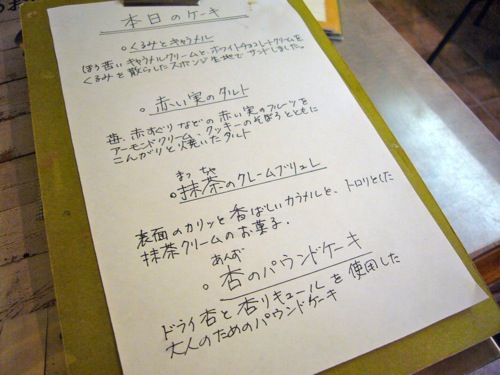 本日のケーキ
。くるみとキャラメル
ほろ苦いキャラメルクリームと、ホワイトチョコレートクリームを
くるみを散らしたスポンジ生地でサンドしました。
。赤い実のタルト
苺、赤すぐりなどの赤い実のフルーツを
アーモンドクリーム、クッキーのそぼろとともに
こんがりと焼いたタルト
まっちゃ
。抹茶のクレームブリュレ
表面のカリッと香ばしいカラメルと、トロリとした
抹茶クリームのお菓子.
あんず
。杏のパウンドケーキ
ドライ杏と杏リキュールを使用した
大人のためのパウンドケーキ